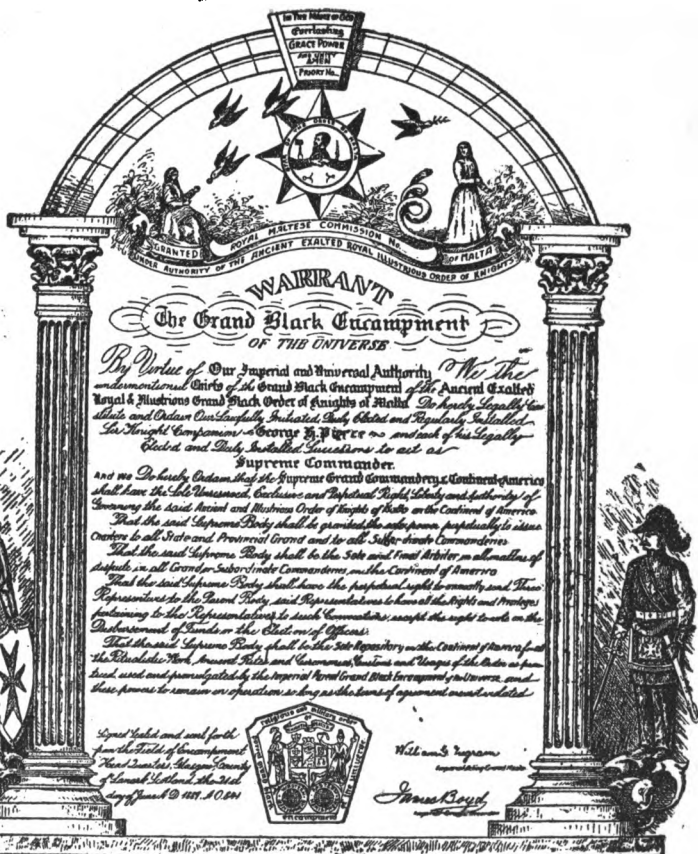 In The Name of God
Everlasting
GRACE POWER
AND UNITY
AMEN
PRIORY No.
OF THE ORDER OF MALTA
GRANTED ROYAL MALTESE COMMISSION No. OF MALTA
UNDER AUTHORITY OF THE ANCIENT EXALTED ROYAL ILLUSTRIOUS ORDER OF KNIGHTS
WARRANT
The Grand Black Encampment
OF THE UNIVERSE
By Virtue of Our Imperial and Universal Authority We the
undermentioned Chiefs of the Grand Black Encampment of the Ancient Exalted
Royal & Illustrious Grand Black Order of Knights of Malta Do hereby Legally Con
stitute and Ordain Our Lawfully Initiated, Duly Elected and Regularly Installed
Sir Knight Companion George H. Pierce and each of his Legally
Elected and Duly Installed Successors to act as
Supreme Commander.
AND WE Do hereby Ordain, that the Supreme Grand Commandery, Continent America
shall have the Sole Unreserved, Exclusive and Perpetual Right, Liberty and Authority of
Governing the said Ancient and Illustrious Order of Knights of Malta on the Continent of America
That the said Supreme Body shall be granted, the sole power perpetually to issue
Charters to all State and Provincial Grand and to all Subordinate Commanderies
That the said Supreme Body shall be the Sole and Final Arbiter in all matters of
dispute, in all Grand or Subordinate Commanderies, on the Continent of America
That the said Supreme Body shall have the perpetual right to annually send Three
Representatives to the Parent Body, said Representatives to have all the Rights and Privileges
pertaining to the Representatives to such Convocations, except the right to vote on the
Disbursement of Funds or the Election of Officers.
That the said Supreme Body shall be the Sole Repository on the Continent of America for all
the Ritualistic Work, Ancient Rites and Ceremonies, Customs and Usages of the Order as prac
ticed, used and promulgated by the Imperial Parent Grand Black Encampment of the Universe and
these powers to remain in operation so long as the terms of agreement are not violated
religious and military order
encampment
Signed Sealed and sent forth
from the Field of Encampment
Head Quarters, Glasgow, County
of Lanark, Scotland, the
day of June A.D. 1889. A.O. 841
William G
James Boyd